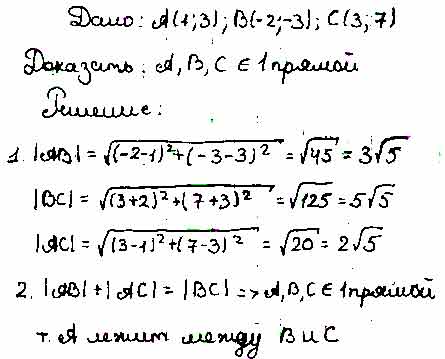 Дано: A(1;3); B(-2;-3); C(3;7)
Доказать: A, B, C ∈ 1 прямой
Решение:
1. |AB| = √((-2-1)²+(-3-3)²) = √45 = 3√5
|BC| = √((3+2)²+(7+3)²) = √125 = 5√5
|AC| = √((3-1)²+(7-3)²) = √20 = 2√5
2. |AB|+|AC| = |BC| => A, B, C ∈ 1 прямой
т. A лежит между B и C